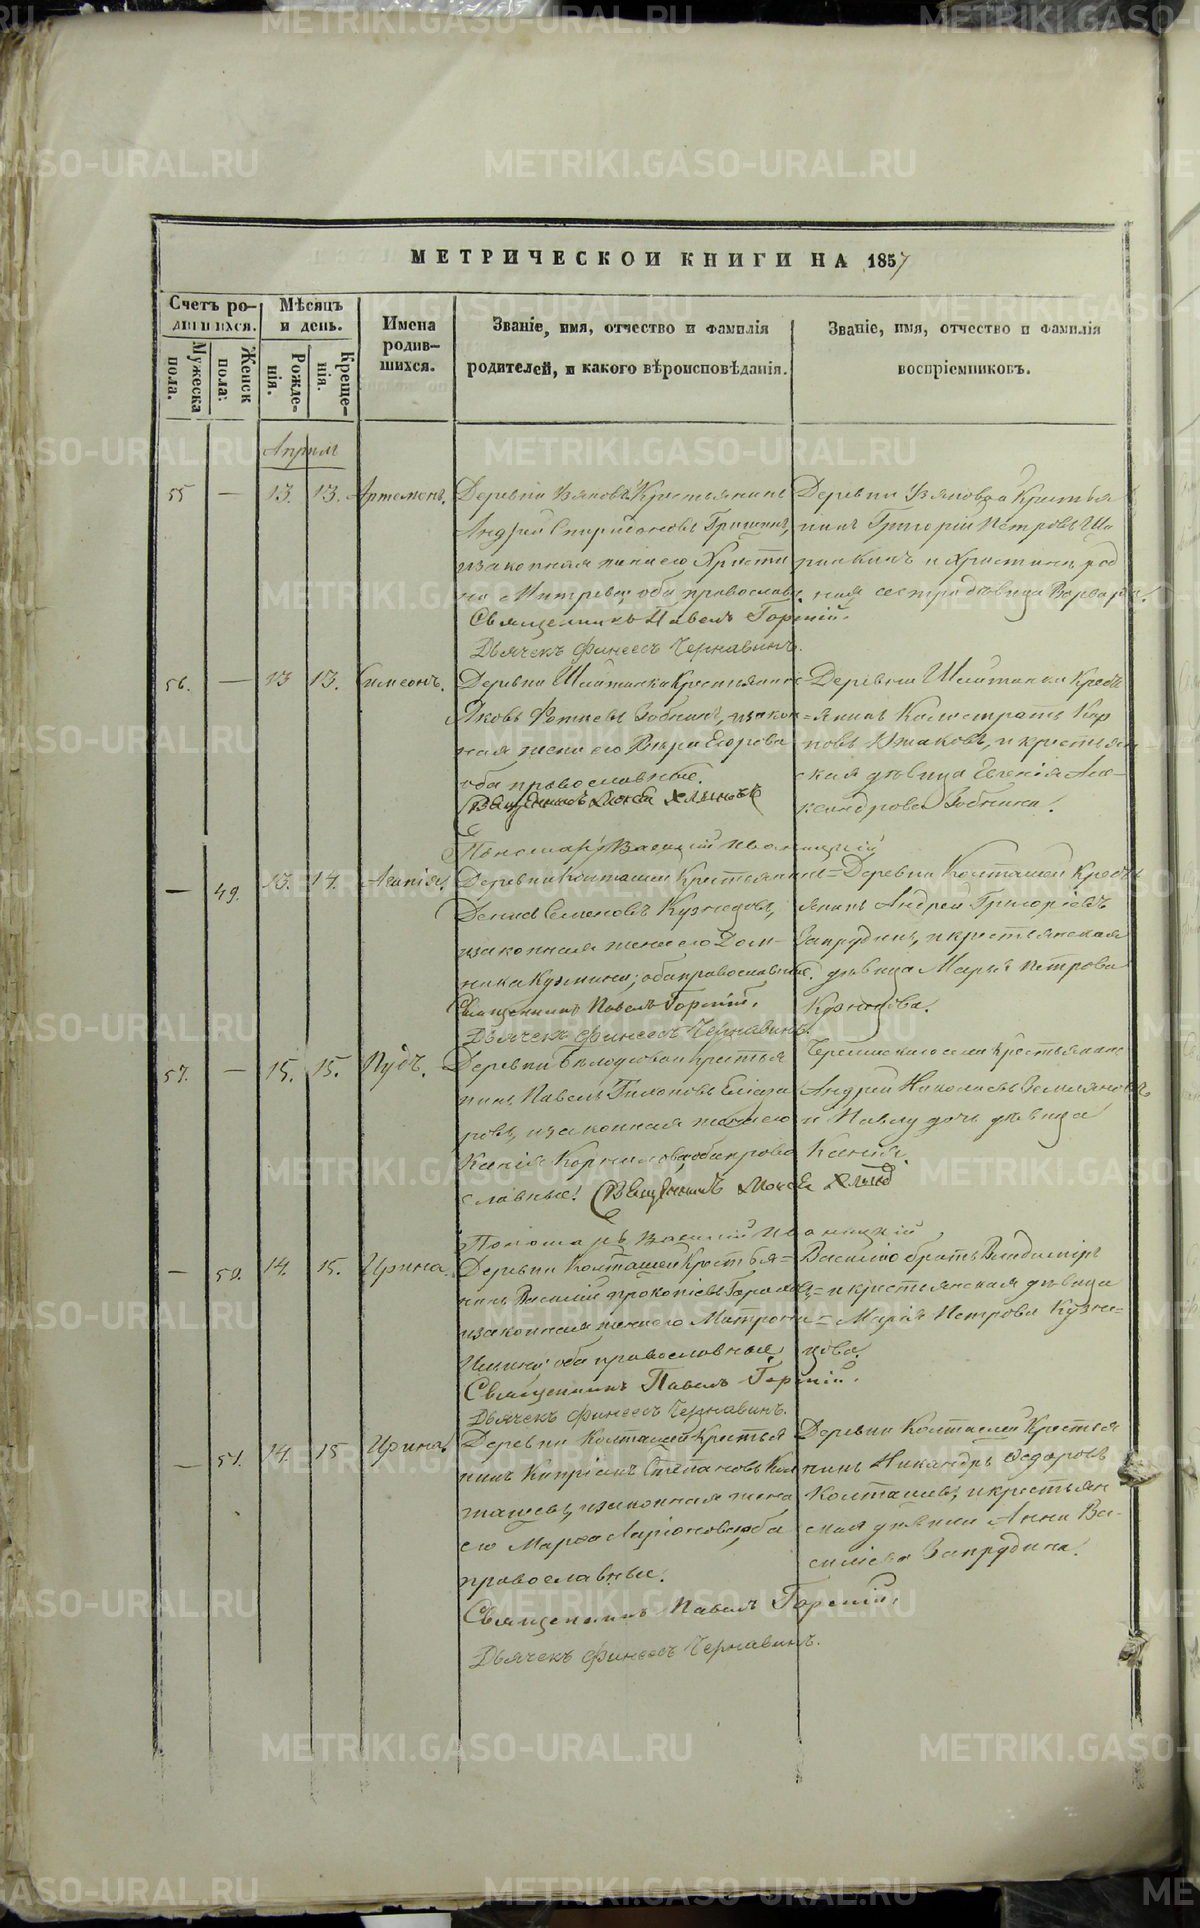 МЕТРИЧЕСКОЙ КНИГИ НА 1857
Счетъ родившихся.
Мужеска пола.
Женск пола:
Мѣсяцъ и день.
Рожденія.
Крещенія.
Имена родившихся.
Званіе, имя, отчество и фамилія
родителей, и какого вѣроисповѣданія.
Званіе, имя, отчество и фамилія
воспріемниковъ.
Апрѣль
55 — 13. 13. Артемонъ.
Андрей Спиридоновъ Гришинъ,
и законная жена его Христи
на Митрева, оба православн.
Священникъ Павелъ Горскій.
Дьячекъ Финеесъ Чернавинъ.
нинъ Григорій Петровъ
ная сестра дѣвица Варвара.
56. — 13 13. Симеонъ.
Деревни Шайтанки Крестьянинъ
Яковъ Фотиевъ Зобнинъ, и закон
ная жена его Вѣра Егорова
оба православные.
Священникъ
Пономарь Василій
Деревни Шайтанки Кресть
=янинъ Калистратъ Кар
повъ и крестьян
ская дѣвица Евгенія Але-
ксандрова Зобнина.
— 49. 13. 14. Агапія.
Деревни Колташей Крестьянинъ
Денисъ Семеновъ Кузнецовъ,
и законная жена его Дом-
ника Кузмина; оба православные.
Священникъ Павелъ Горскій.
Дьячекъ Финеесъ Чернавинъ.
Деревни Колташей Кресть
янинъ Андрей Григорьевъ
Запрудинъ, и крестьянская
дѣвица Марья Петрова
Кузнецова.
57. — 15. 15. Пудъ.
нинъ Павелъ
ровъ, и законная жена его
Капія Корнилова, оба право
славные. Священникъ
Пономарь Василій
села крестьянинъ
Андрей Николаевъ Земляновъ
и Павлу дочь дѣвица
— 50. 14. 15. Ирина.
Деревни Колташей Крестья=
нинъ Василій Прокопіевъ
и законная жена его Матрона
Ильина; оба православные
Священникъ Павелъ Горскій.
Дьячекъ Финеесъ Чернавинъ.
Василію братъ Владиміръ
=и крестьянская дѣвица
= Марія Петрова Кузне=
цова.
— 51. 14. 15 Ирина.
Деревни Колташей Крестья
нинъ Кипріянъ Степановъ Кол
ташевъ, и законная жена
его Марфа Ларіонова, оба
православные.
Священникъ Павелъ Горскій.
Дьячекъ Финеесъ Чернавинъ.
Деревни Колташей Крестья
нинъ Никандръ Федоровъ
Колташевъ, и крестьян
ская дѣвица Анна Ва-
силіева Запрудина.